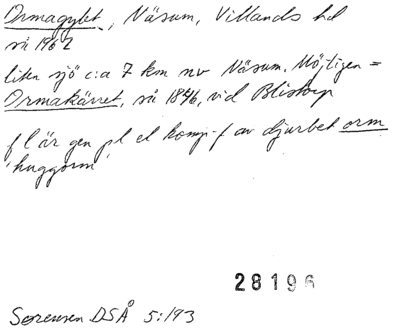 Ormagylet, Näsum, Villands hd
så 1962
liten sjö c:a 7 km nv Näsum. Möjligen =
Ormakärret, så 1846, vid Blistorp
fl är gen pl el komp-f av djurbet orm
'huggorm'
28196
Sørensen DSÅ 5:193